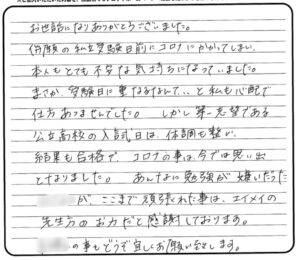 お世話になりありがとうございました。
併願の私立受験日前にコロナにかかってしまい、
本人もとても不安な気持ちになっていました。
まさか、受験日に重なるなんて…と私も心配で
仕方ありませんでした。しかし第一志望である
公立高校の入試日は、体調も整い、
結果も合格で、コロナの事は今では思い出
となりました。あんなに勉強が嫌いだった
が、ここまで頑張れた事は、エイメイの
先生方のお力だと感謝しております。
の事もどうぞ宜しくお願い致します。